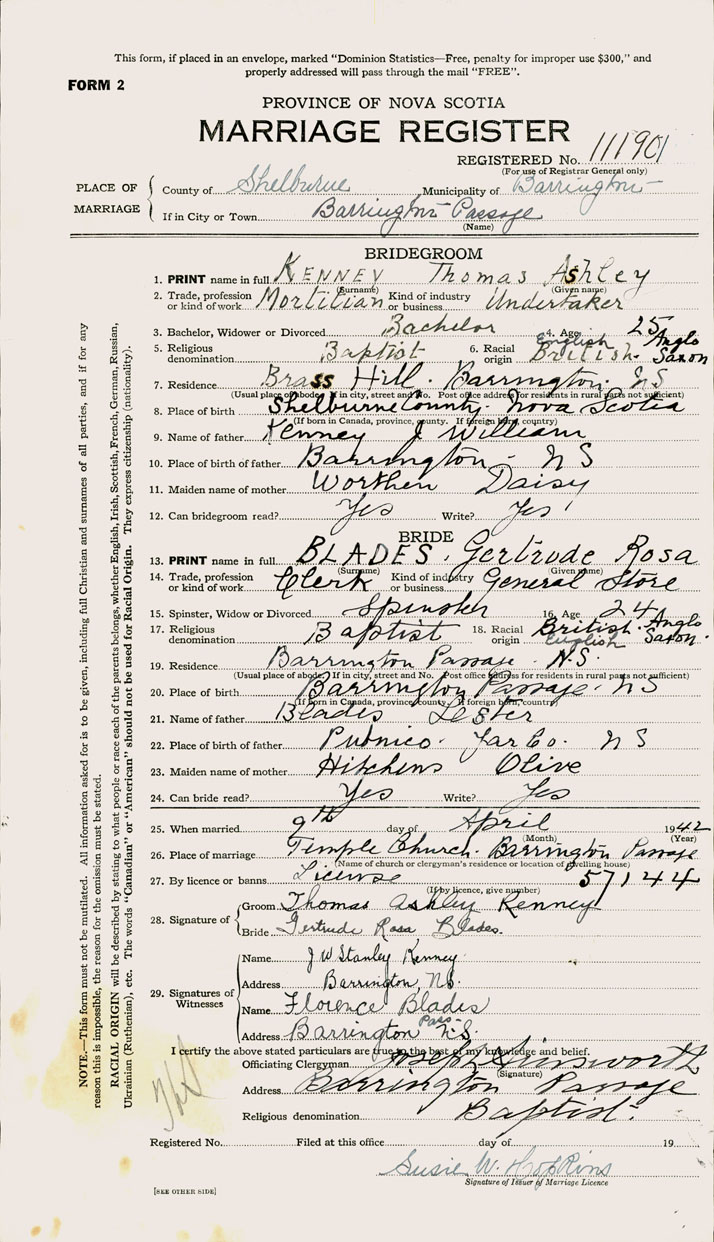 This form, if placed in an envelope, marked "Dominion Statistics—Free, penalty for improper use $300," and
properly addressed will pass through the mail "FREE".
FORM 2
PROVINCE OF NOVA SCOTIA
MARRIAGE REGISTER
REGISTERED No. 111901
(For use of Registrar General only)
PLACE OF MARRIAGE
County of Shelburne Municipality of Barrington
If in City or Town Barrington Passage
(Name)
BRIDEGROOM
1. PRINT name in full KENNEY Thomas Ashley
(Surname) (Given name)
2. Trade, profession or kind of work Mortitian Kind of industry or business Undertaker
3. Bachelor, Widower or Divorced Bachelor 4. Age 25
5. Religious denomination Baptist 6. Racial origin English British Anglo Saxon
7. Residence Brass Hill. Barrington. NS
(Usual place of abode. If in city, street and No. Post office address for residents in rural parts not sufficient)
8. Place of birth Shelburne County. Nova Scotia
(If born in Canada, province, county. If foreign born, country)
9. Name of father Kenney J William
10. Place of birth of father Barrington - NS
11. Maiden name of mother Worthen Daisy
12. Can bridegroom read? Yes Write? Yes
BRIDE
13. PRINT name in full BLADES. Gertrude Rosa
(Surname) (Given name)
14. Trade, profession or kind of work Clerk Kind of industry or business General Store
15. Spinster, Widow or Divorced Spinster 16. Age 24
17. Religious denomination Baptist 18. Racial origin British. English Anglo Saxon.
19. Residence Barrington Passage. N.S.
(Usual place of abode. If in city, street and No. Post office address for residents in rural parts not sufficient)
20. Place of birth Barrington Passage. NS
(If born in Canada, province, county. If foreign born, country)
21. Name of father Blades Lester
22. Place of birth of father Pubnico. Yar Co. NS
23. Maiden name of mother Hitchens Olive
24. Can bride read? Yes Write? Yes
25. When married 9th day of April 1942
(Month) (Year)
26. Place of marriage Temple Church. Barrington Passage
(Name of church or clergyman's residence or location of dwelling house)
27. By licence or banns License 57144
(If by licence, give number)
28. Signature of
Groom Thomas Ashley Kenney
Bride Gertrude Rosa Blades.
29. Signatures of Witnesses
Name J W Stanley Kenney
Address Barrington, NS.
Name Florence Blades
Address Barrington Pass- NS.
I certify the above stated particulars are true to the best of my knowledge and belief.
Officiating Clergyman Joseph Ainsworth
(Signature)
Address Barrington Passage
Religious denomination Baptist.
Registered No. Filed at this office day of 19
Susie W. Hopkins
Signature of Issuer of Marriage Licence
[SEE OTHER SIDE]
NOTE.—This form must not be mutilated. All information asked for is to be given, including full Christian and surnames of all parties, and if for any
reason this is impossible, the reason for the omission must be stated.
RACIAL ORIGIN will be described by stating to what people or race each of the parents belongs, whether English, Irish, Scottish, French, German, Russian,
Ukrainian (Ruthenian), etc. The words "Canadian" or "American" should not be used for Racial Origin. They express citizenship (nationality).